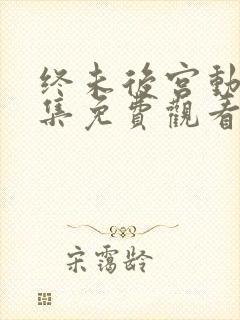 终末後宮動
集免費觀看
宋靄龄